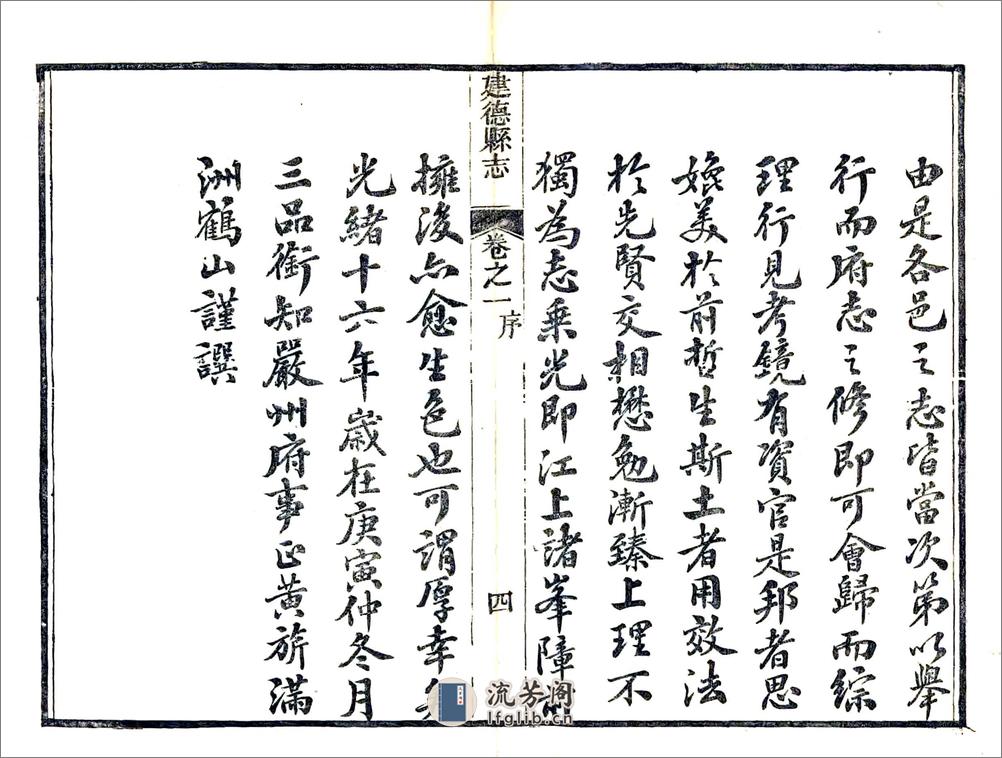 由是各邑之志皆當次第以舉
行而府志之修即可會歸而綜
理行見考鏡有資官是邦者思
媲美於前哲生斯土者用效法
於先賢交相懋勉漸臻上理不
獨為志乘光即江上諸峯障
建德縣志
卷之一序
四
擁浚亦愈生色也可謂厚幸矣
光緒十六年歲在庚寅仲冬月
三品銜知嚴州府事正黃旂滿
洲鶴山謹譔
流芳阁
lfglib.com